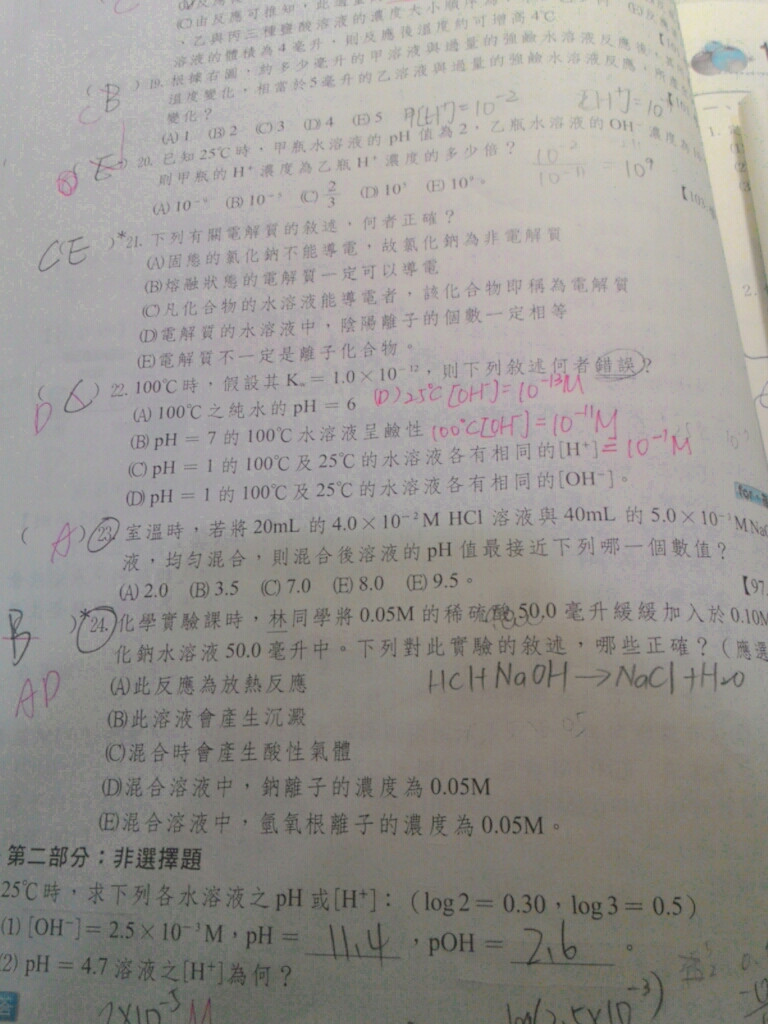 (C)由反應可推知，此過量
、乙與丙三種鹽酸溶液的濃度大小順序為
溶液的體積為4毫升，則反應後溫度約可增高4℃
(CB) 19. 根據右圖，約多少毫升的甲溶液與過量的強鹼水溶液反應後，
溫度變化，相當於5毫升的乙溶液與過量的強鹼水溶液反應，所
變化？
(A) 1 (B) 2 (C) 3 (D) 4 (E) 5 [H⁺]=10⁻² [H⁺]=10
(E) 20. 已知25℃時，甲瓶水溶液的pH值為2，乙瓶水溶液的OH⁻濃度為
則甲瓶的H⁺濃度為乙瓶H⁺濃度的多少倍？ 10⁻²/10⁻¹¹ = 10⁹
(A) 10⁻⁹ (B) 10⁻⁵ (C) 2/3 (D) 10⁵ (E) 10⁹。
CE )*21. 下列有關電解質的敘述，何者正確？
(A)固態的氯化鈉不能導電，故氯化鈉為非電解質
(B)熔融狀態的電解質一定可以導電
(C)凡化合物的水溶液能導電者，該化合物即稱為電解質
(D)電解質的水溶液中，陰陽離子的個數一定相等
(E)電解質不一定是離子化合物。
D 22. 100℃時，假設其Kw = 1.0×10⁻¹²，則下列敘述何者錯誤？
(A) 100℃之純水的pH = 6 (D) 25℃[OH⁻]=10⁻¹³M
(B) pH = 7的100℃水溶液呈鹼性 100℃[OH⁻]=10⁻¹¹M
(C) pH = 1的100℃及25℃的水溶液各有相同的[H⁺] =10⁻¹M
(D) pH = 1的100℃及25℃的水溶液各有相同的[OH⁻]。
( A ) 23. 室溫時，若將20mL的4.0×10⁻²M HCl溶液與40mL的5.0×10⁻³M Na
液，均勻混合，則混合後溶液的pH值最接近下列哪一個數值？
(A) 2.0 (B) 3.5 (C) 7.0 (E) 8.0 (E) 9.5。 【97.
B )*24. 化學實驗課時，林同學將0.05M的稀硫酸50.0毫升緩緩加入於0.10M
化鈉水溶液50.0毫升中。下列對此實驗的敘述，哪些正確？(應選
AD (A)此反應為放熱反應 HCl+NaOH→NaCl+H₂O
(B)此溶液會產生沉澱
(C)混合時會產生酸性氣體
(D)混合溶液中，鈉離子的濃度為0.05M
(E)混合溶液中，氫氧根離子的濃度為0.05M。
第二部分：非選擇題
25℃時，求下列各水溶液之pH或[H⁺]：(log2 = 0.30，log3 = 0.5)
(1) [OH⁻] = 2.5×10⁻³M，pH = 11.4，pOH = 2.6。
(2) pH = 4.7溶液之[H⁺]為何？
答 2×10⁻⁵ M log(2.5×10⁻³)